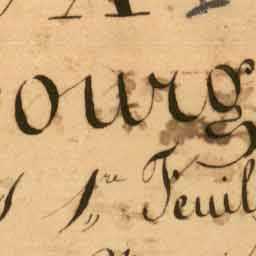 A
ourg
1re Feuil